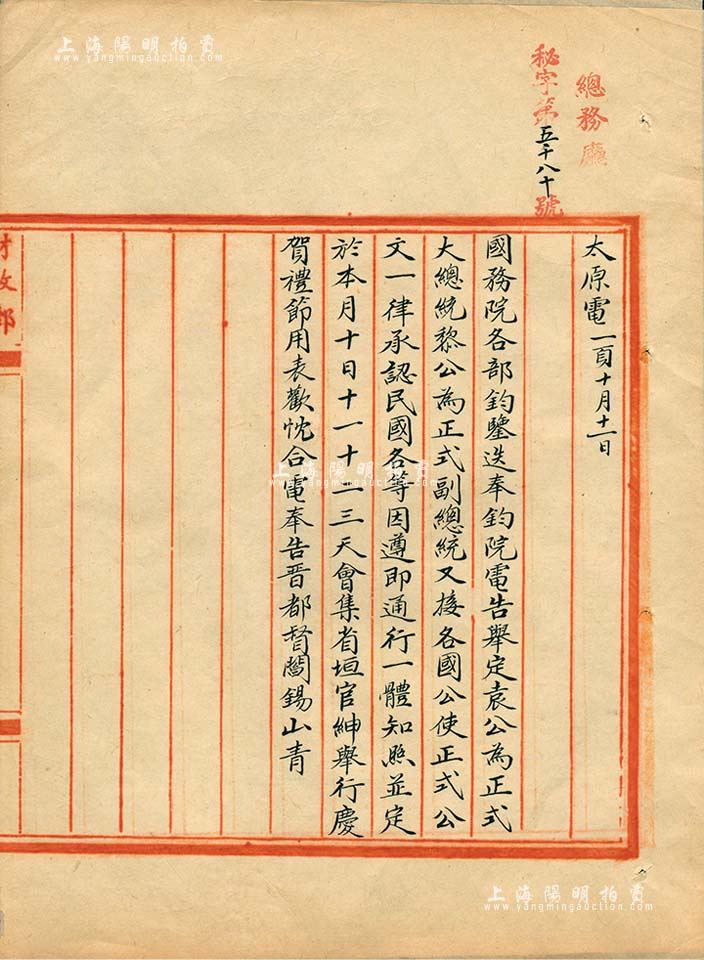 上海陽明拍賣
www.yangmingauction.com
總務廳
秘字第五千八十號
太原電 一百 十月十一日
國務院各部鈞鑒迭奉鈞院電告舉定袁公為正式
大總統黎公為正式副總統又接各國公使正式公
文一律承認民國各等因遵即通行一體知照並定
於本月十日十一十二三天會集省垣官紳舉行慶
賀禮節用表歡忱合電奉告晋都督閻錫山青
財政部
上海陽明拍賣
www.yangmingauction.com
上海陽明拍賣
www.yangmingauction.com